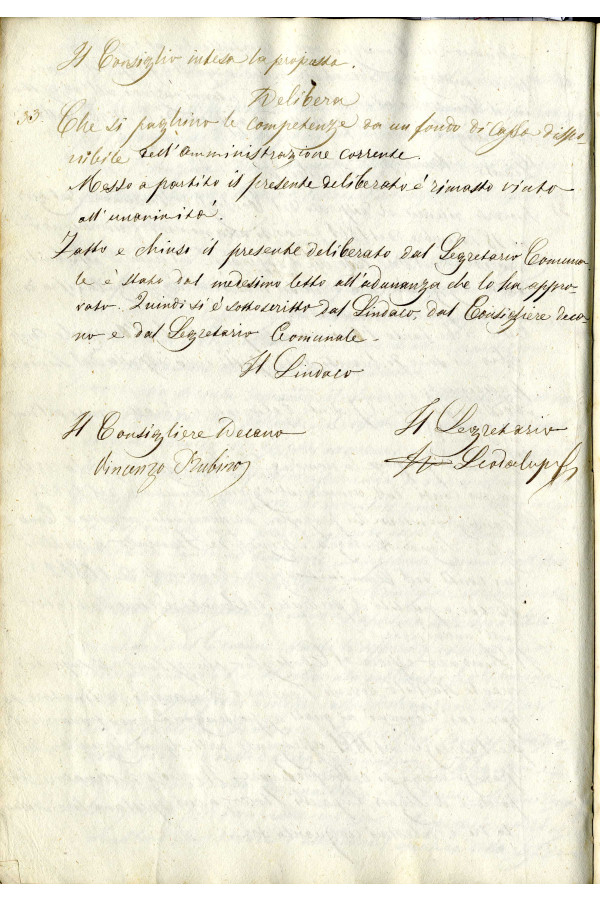 Il Consiglio intesa la proposta.
Delibera
33.
Che si paghino le competenze da un fondo di cassa dispo-
nibile dell'amministrazione corrente.
Messo a partito il presente deliberato è rimasto vinto
all'unanimità.
Fatto e chiuso il presente deliberato dal Segretario Comuna-
le è stato dal medesimo letto all'adunanza che lo ha appro-
vato. Quindi si è sottoscritto dal Sindaco, dal Consigliere deca-
no e dal Segretario Comunale.
Il Sindaco
Il Consigliere Decano
Il Segretario
Vincenzo Rubino